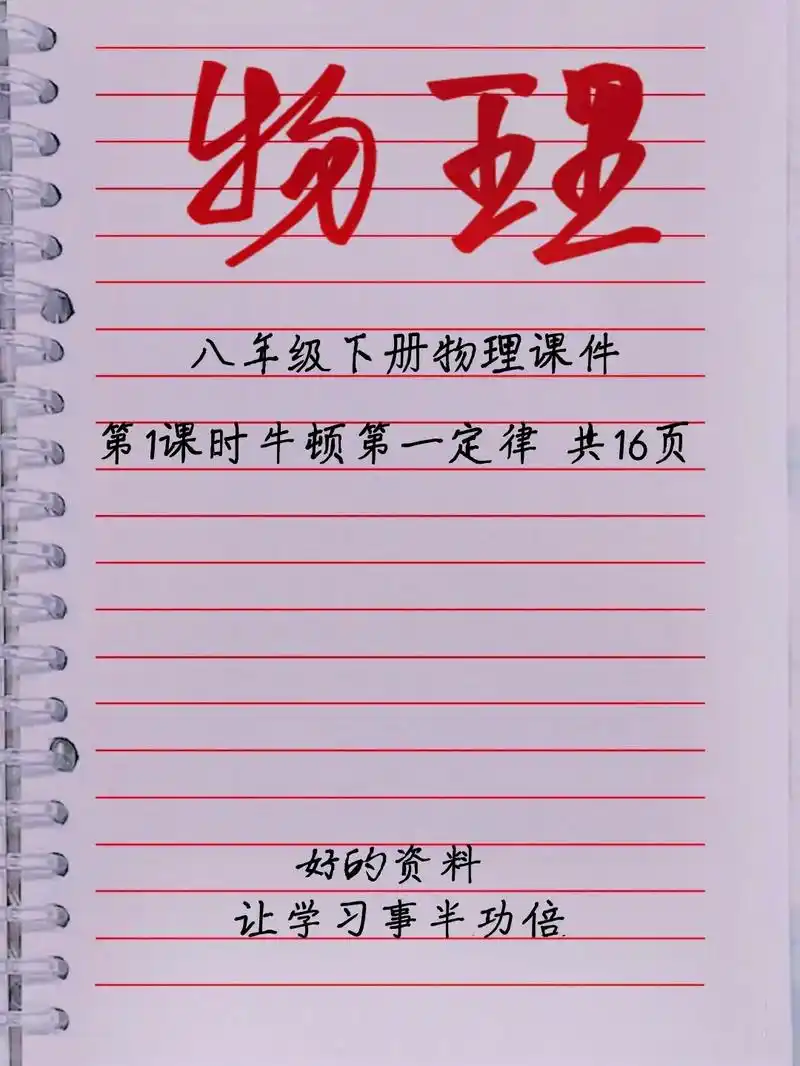 物理
八年级下册物理课件
第1课时牛顿第一定律 共16页
好的资料
让学习事半功倍